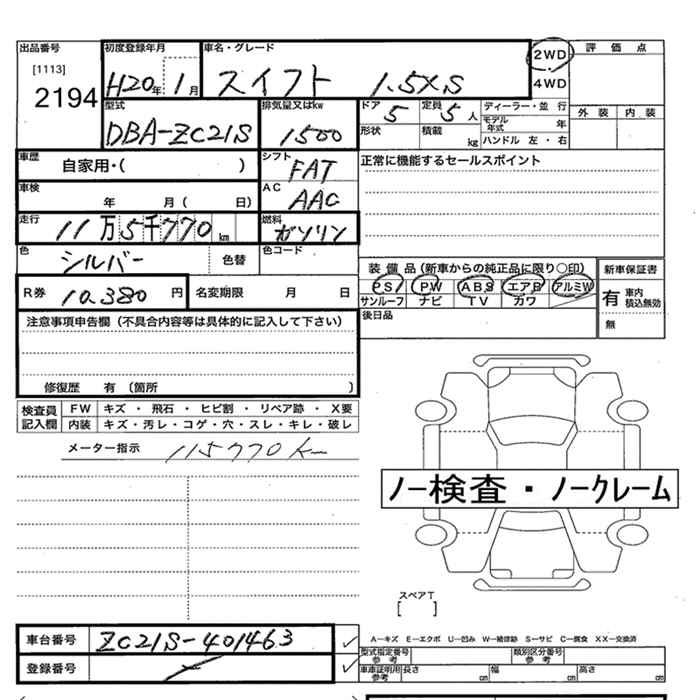 出品番号 初度登録年月 車名・グレード 2WD 評価点
[1113]
2194 H20年 1月 スイフト 1.5XS 4WD
型式 排気量又はkw ドア 定員 ディーラー・並行 外装 内装
DBA-ZC21S 1500 5 5人 モデル年式 年
形状 積載 kg ハンドル 左・右
車歴 自家用・( ) シフト FAT 正常に機能するセールスポイント
車検 年 月( 日) AC AAC
走行 11万5千770km 燃料 ガソリン
色 シルバー 色替 色コード 装備品(新車からの純正品に限り○印) 新車保証書
R券 10,380円 名変期限 月 日 PS PW ABS エアB アルミW 有 車内積込無効
サンルーフ ナビ TV カワ
注意事項申告欄(不具合内容等は具体的に記入して下さい) 後日品 無
修復歴 有(箇所 )
検査員記入欄 FW キズ・飛石・ヒビ割・リペア跡・X要
内装 キズ・汚レ・コゲ・穴・スレ・キレ・破レ
メーター指示 115770km
ノー検査・ノークレーム
スペアT
[ ]
車台番号 ZC21S-401463 A―キズ E―エクボ U―凹み W―補修跡 S―サビ C―腐食 XX―交換済
型式指定番号参考 類別区分番号参考
登録番号 車車証明用参考 長さ cm 幅 cm 高さ cm